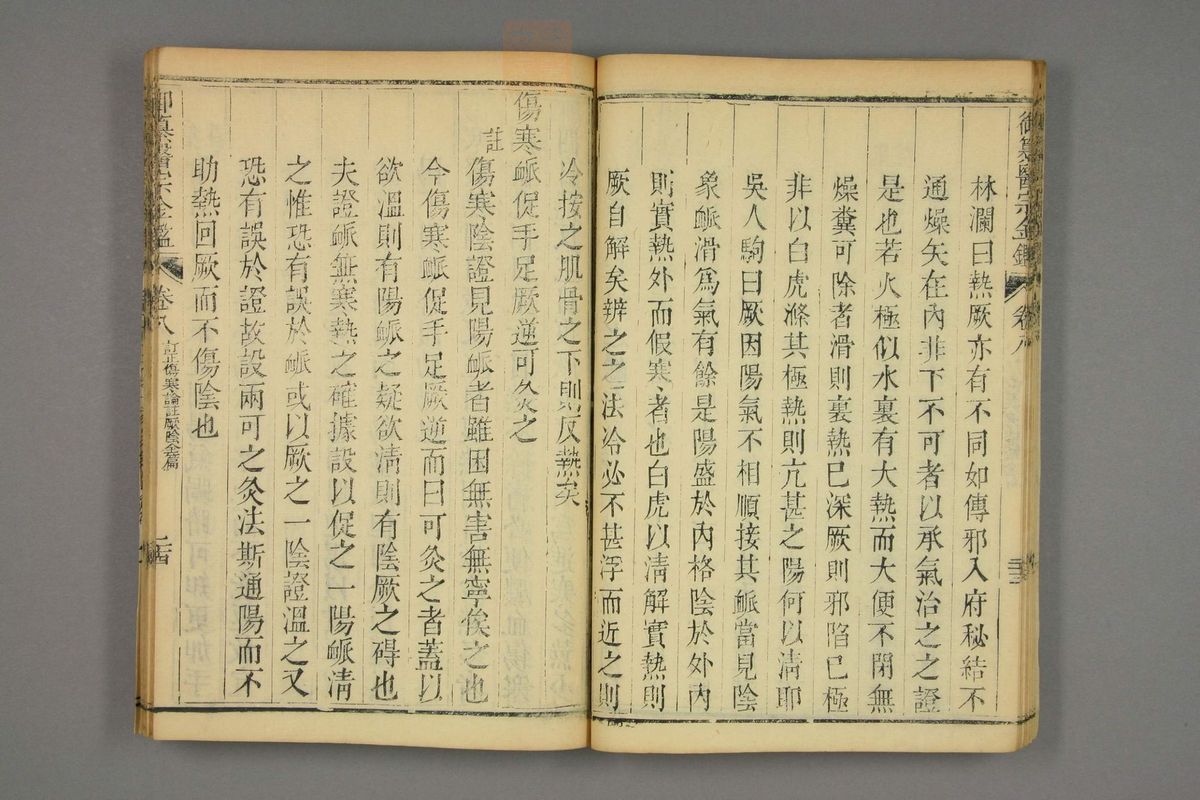 御纂醫宗金鑑
卷八
三十三
林瀾曰熱厥亦有不同如傳邪入府秘結不
通燥矢在內非下不可者以承氣治之之證
是也若火極似水裏有大熱而大便不閉無
燥糞可除者滑則裏熱已深厥則邪陷已極
非以白虎滌其極熱則亢甚之陽何以清耶
吳人駒曰厥因陽氣不相順接其脈當見陰
象脈滑爲氣有餘是陽盛於內格陰於外內
則實熱外而假寒者也白虎以清解實熱則
厥自解矣辨之之法冷必不甚浮而近之則
冷按之肌骨之下則反熱矣
傷寒脈促手足厥逆可灸之
註
傷寒陰證見陽脈者雖困無害無寧俟之也
今傷寒脈促手足厥逆而曰可灸之者蓋以
欲溫則有陽脈之疑欲清則有陰厥之碍也
夫證脈無寒熱之確據設以促之一陽脈清
之惟恐有誤於脈或以厥之一陰證溫之又
恐有誤於證故設兩可之灸法斯通陽而不
助熱回厥而不傷陰也
御纂醫宗金鑑
卷八
訂正傷寒論註厥陰全篇